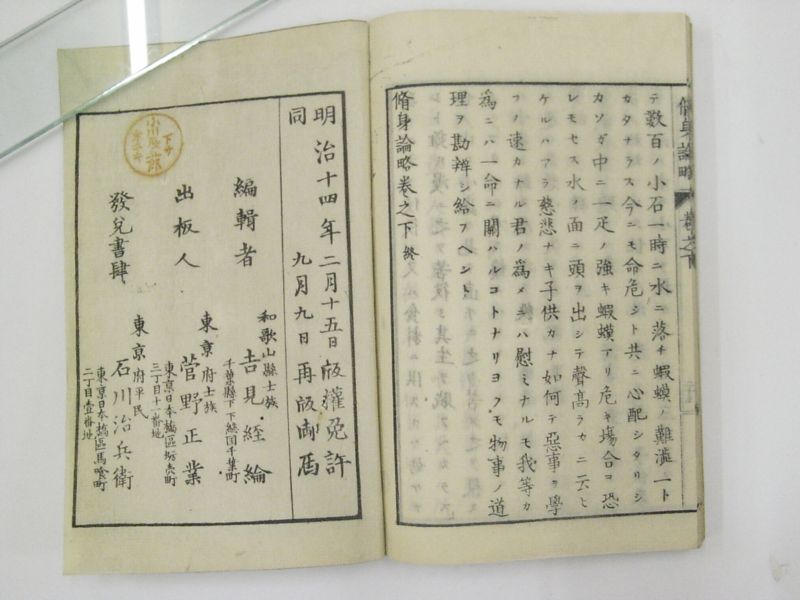 脩身論略 巻之下
テ数百ノ小石一時ニ水ニ落チ蝦蟆ノ難澁一ト
カタナラス今ニモ命危シト共ニ心配シタリシ
カソガ中ニ一疋ノ強キ蝦蟆アリ危キ塲合ヨ恐
レモセス水ノ面ニ頭ヲ出シテ聲高ラカニ云ヒ
ケルハアラ慈悲ナキ子供カナ如何テ惡事ヲ學
フノ速カナル君ノ爲メニハ慰ミナルモ我等カ
爲ニハ一命ニ關ハルコトナリヨクモ物事ノ道
理ヲ勘辨シ給フヘシト
脩身論略巻之下 終
明治十四年二月十五日版權免許
同 九月九日再版御届
編輯者
和歌山縣士族
吉見経綸
千葉縣下下総國千葉町
出板人
東京府士族
菅野正業
東京日本橋區坂本町
三丁目十一番地
發兌書肆
東京府平民
石川治兵衛
東京日本橋區馬喰町
二丁目壹番地